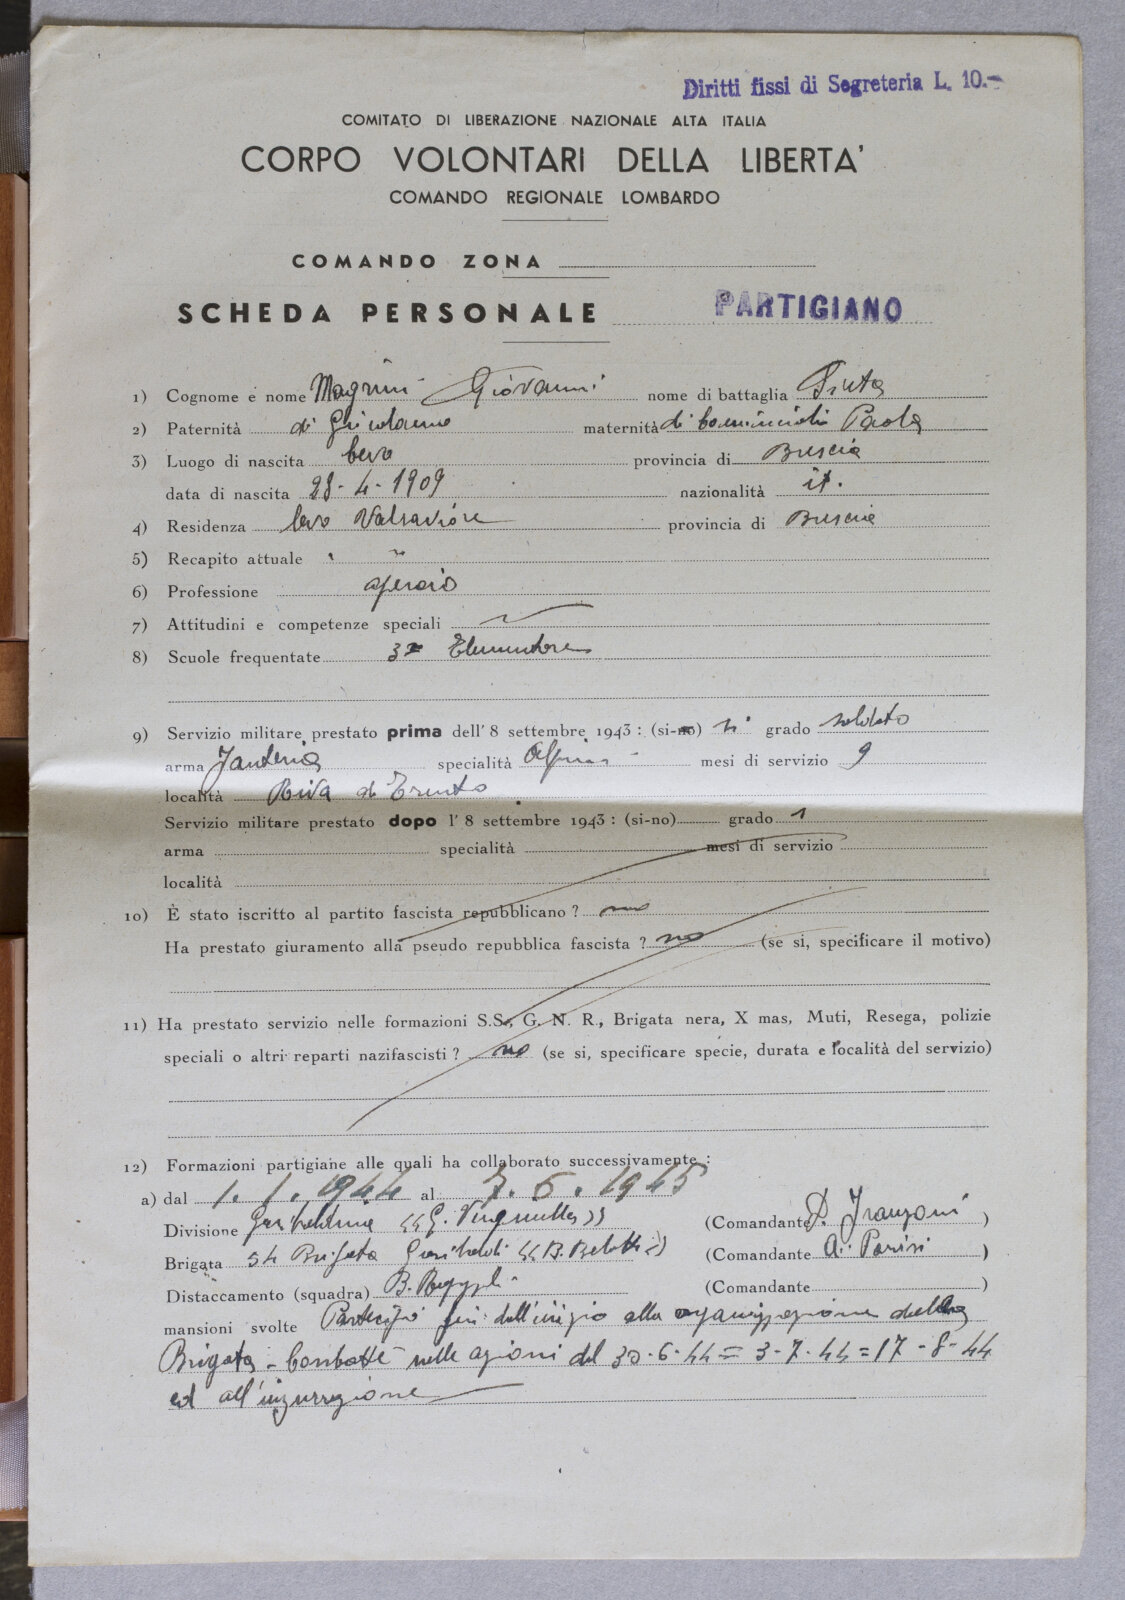 Diritti fissi di Segreteria L. 10.-
COMITATO DI LIBERAZIONE NAZIONALE ALTA ITALIA
CORPO VOLONTARI DELLA LIBERTA'
COMANDO REGIONALE LOMBARDO
COMANDO ZONA
SCHEDA PERSONALE PARTIGIANO
1) Cognome e nome Magrini Giovanni nome di battaglia
2) Paternità di Girolamo maternità di Comincioli Paola
3) Luogo di nascita Cevo provincia di Brescia
data di nascita 28-4-1909 nazionalità it.
4) Residenza Cevo Valsaviore provincia di Brescia
5) Recapito attuale " "
6) Professione operaio
7) Attitudini e competenze speciali
8) Scuole frequentate 3ª Elementare
9) Servizio militare prestato prima dell' 8 settembre 1943 : (si-no) si grado soldato
arma Fanteria specialità Alpini mesi di servizio 9
località Riva di Trento
Servizio militare prestato dopo l' 8 settembre 1943 : (si-no) grado
arma specialità mesi di servizio
località
10) È stato iscritto al partito fascista repubblicano ? no
Ha prestato giuramento alla pseudo repubblica fascista ? no (se si, specificare il motivo)
11) Ha prestato servizio nelle formazioni S.S., G. N. R., Brigata nera, X mas, Muti, Resega, polizie
speciali o altri reparti nazifascisti ? no (se si, specificare specie, durata e località del servizio)
12) Formazioni partigiane alle quali ha collaborato successivamente :
a) dal 1.1.1944 al 7.5.1945
Divisione Garibaldina (Comandante D. Franzoni )
Brigata 54 Brigata Garibaldi "B. Belotti" (Comandante A. Parisi )
Distaccamento (squadra) B. (Comandante )
mansioni svolte Partecipò fin dall'inizio alla organizzazione della
Brigata - Combatté nelle azioni del 30-6-44 = 3-7-44 = 17-8-44
ed all'insurrezione